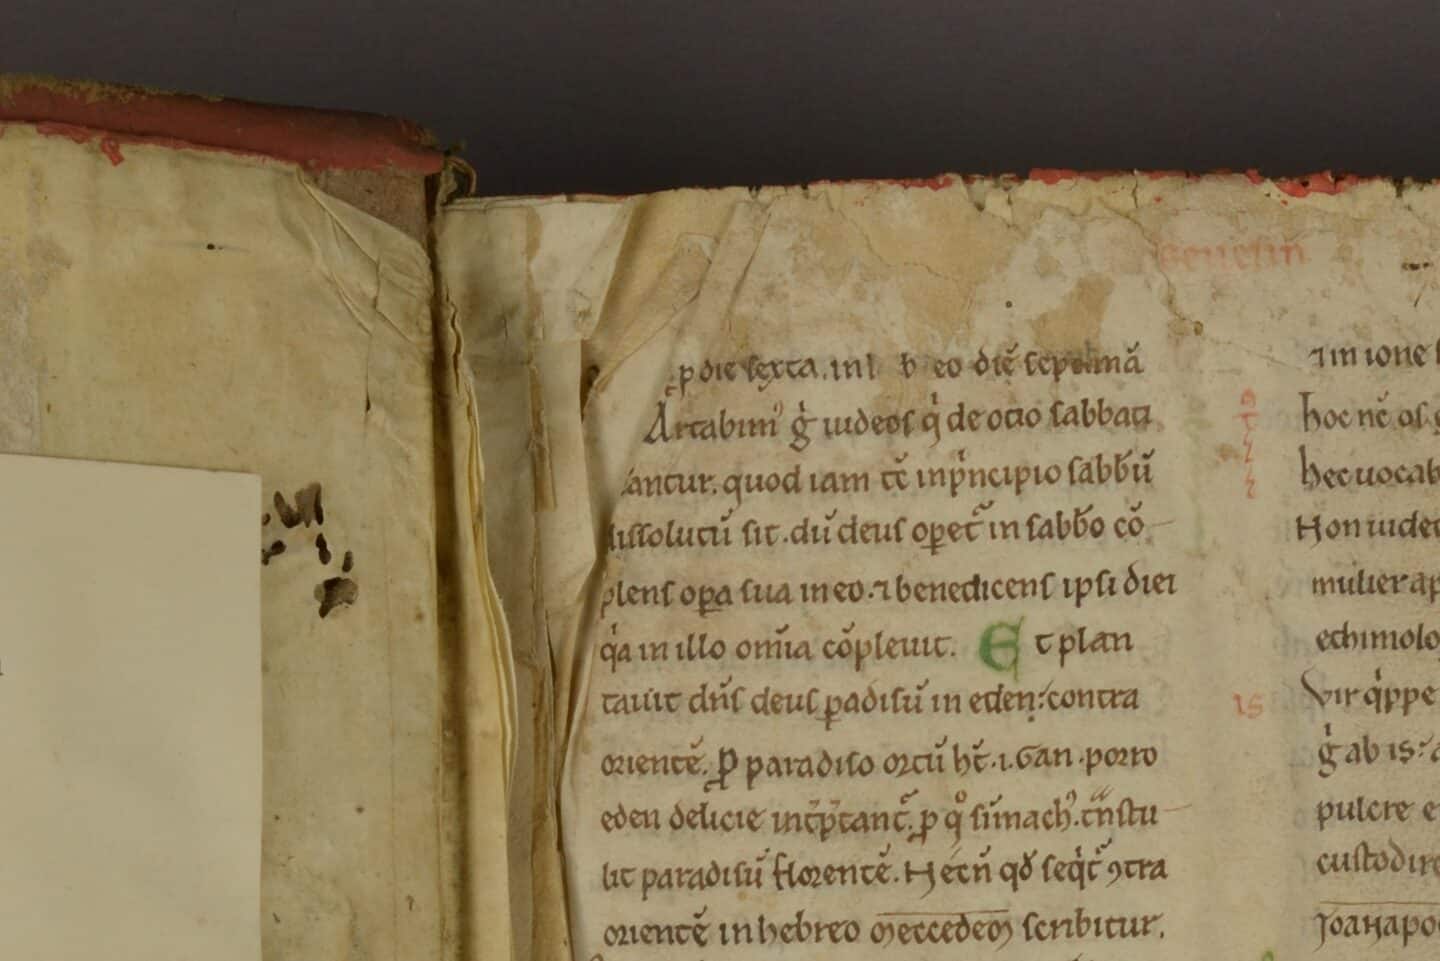 genesim
ꝓ die sexta. in l b eo diē septimā
Artabim᾽ g̍ iudeos q̍ de ocio sabbati
antur. quod iam tc̄ inp̍ncipio sabb̄ū
dissolutū sit. dū deus oꝑet᷑ in sabb̄o cō
plens oꝑa sua in eo. ⁊ benedicens ipsi diei
q̍a in illo om̄ia cōpleuit. Et plan
tauit dn̄s deus ꝑadisū in eden: contra
orientē. Ꝓ paradiso ortū ht̄ .i. Gan. porro
eden delicie int̄p̄tant᷑. ꝓ qͦ sīmach᾽. tn̄stu
lit paradisū florentē. Hecn̄ qd̄ seq̍t᷑ ꝯtra
orientē in hebreo meccedem scribitur.
a
is
⁊ in ione
hoc nē os
hec uocab
Non iudec
mulier ap
ethimolo
Vir q̍ppe
g̍ ab is:
pulcre e
custodire